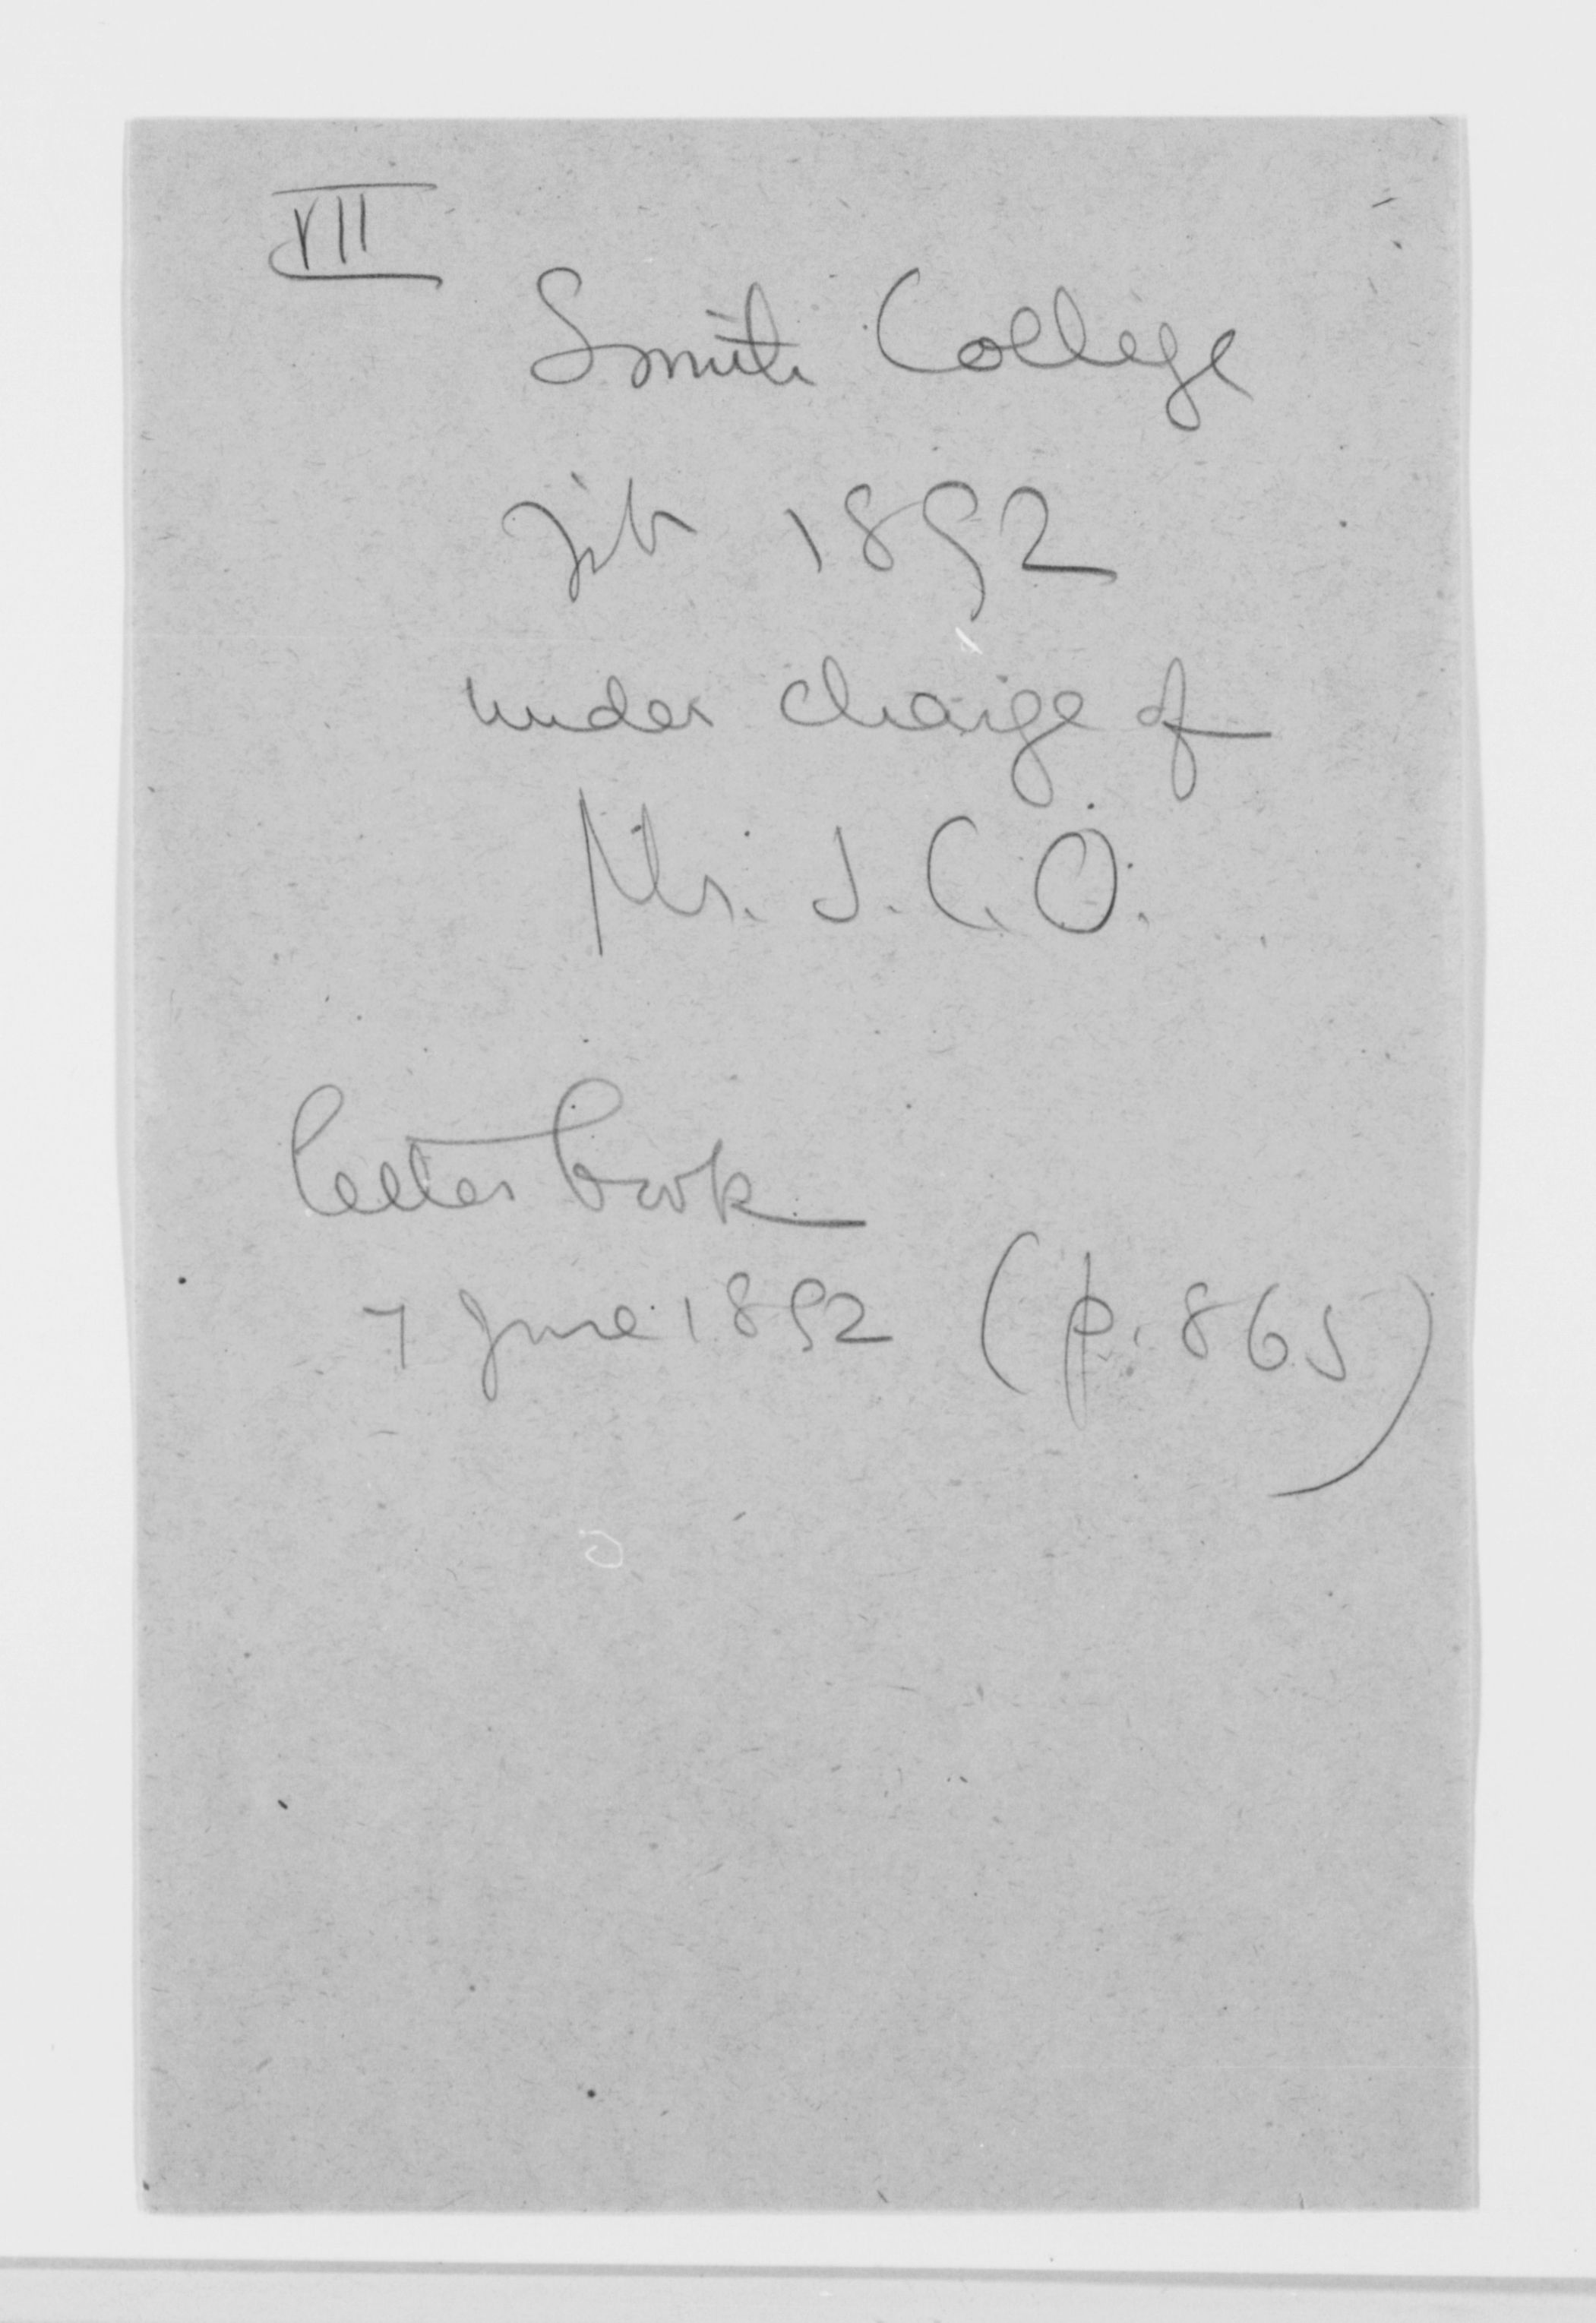 VII
Smith College
Feb 1892
under charge of
Mr. J. C. O.
letter book
7 June 1892 (p. 865)